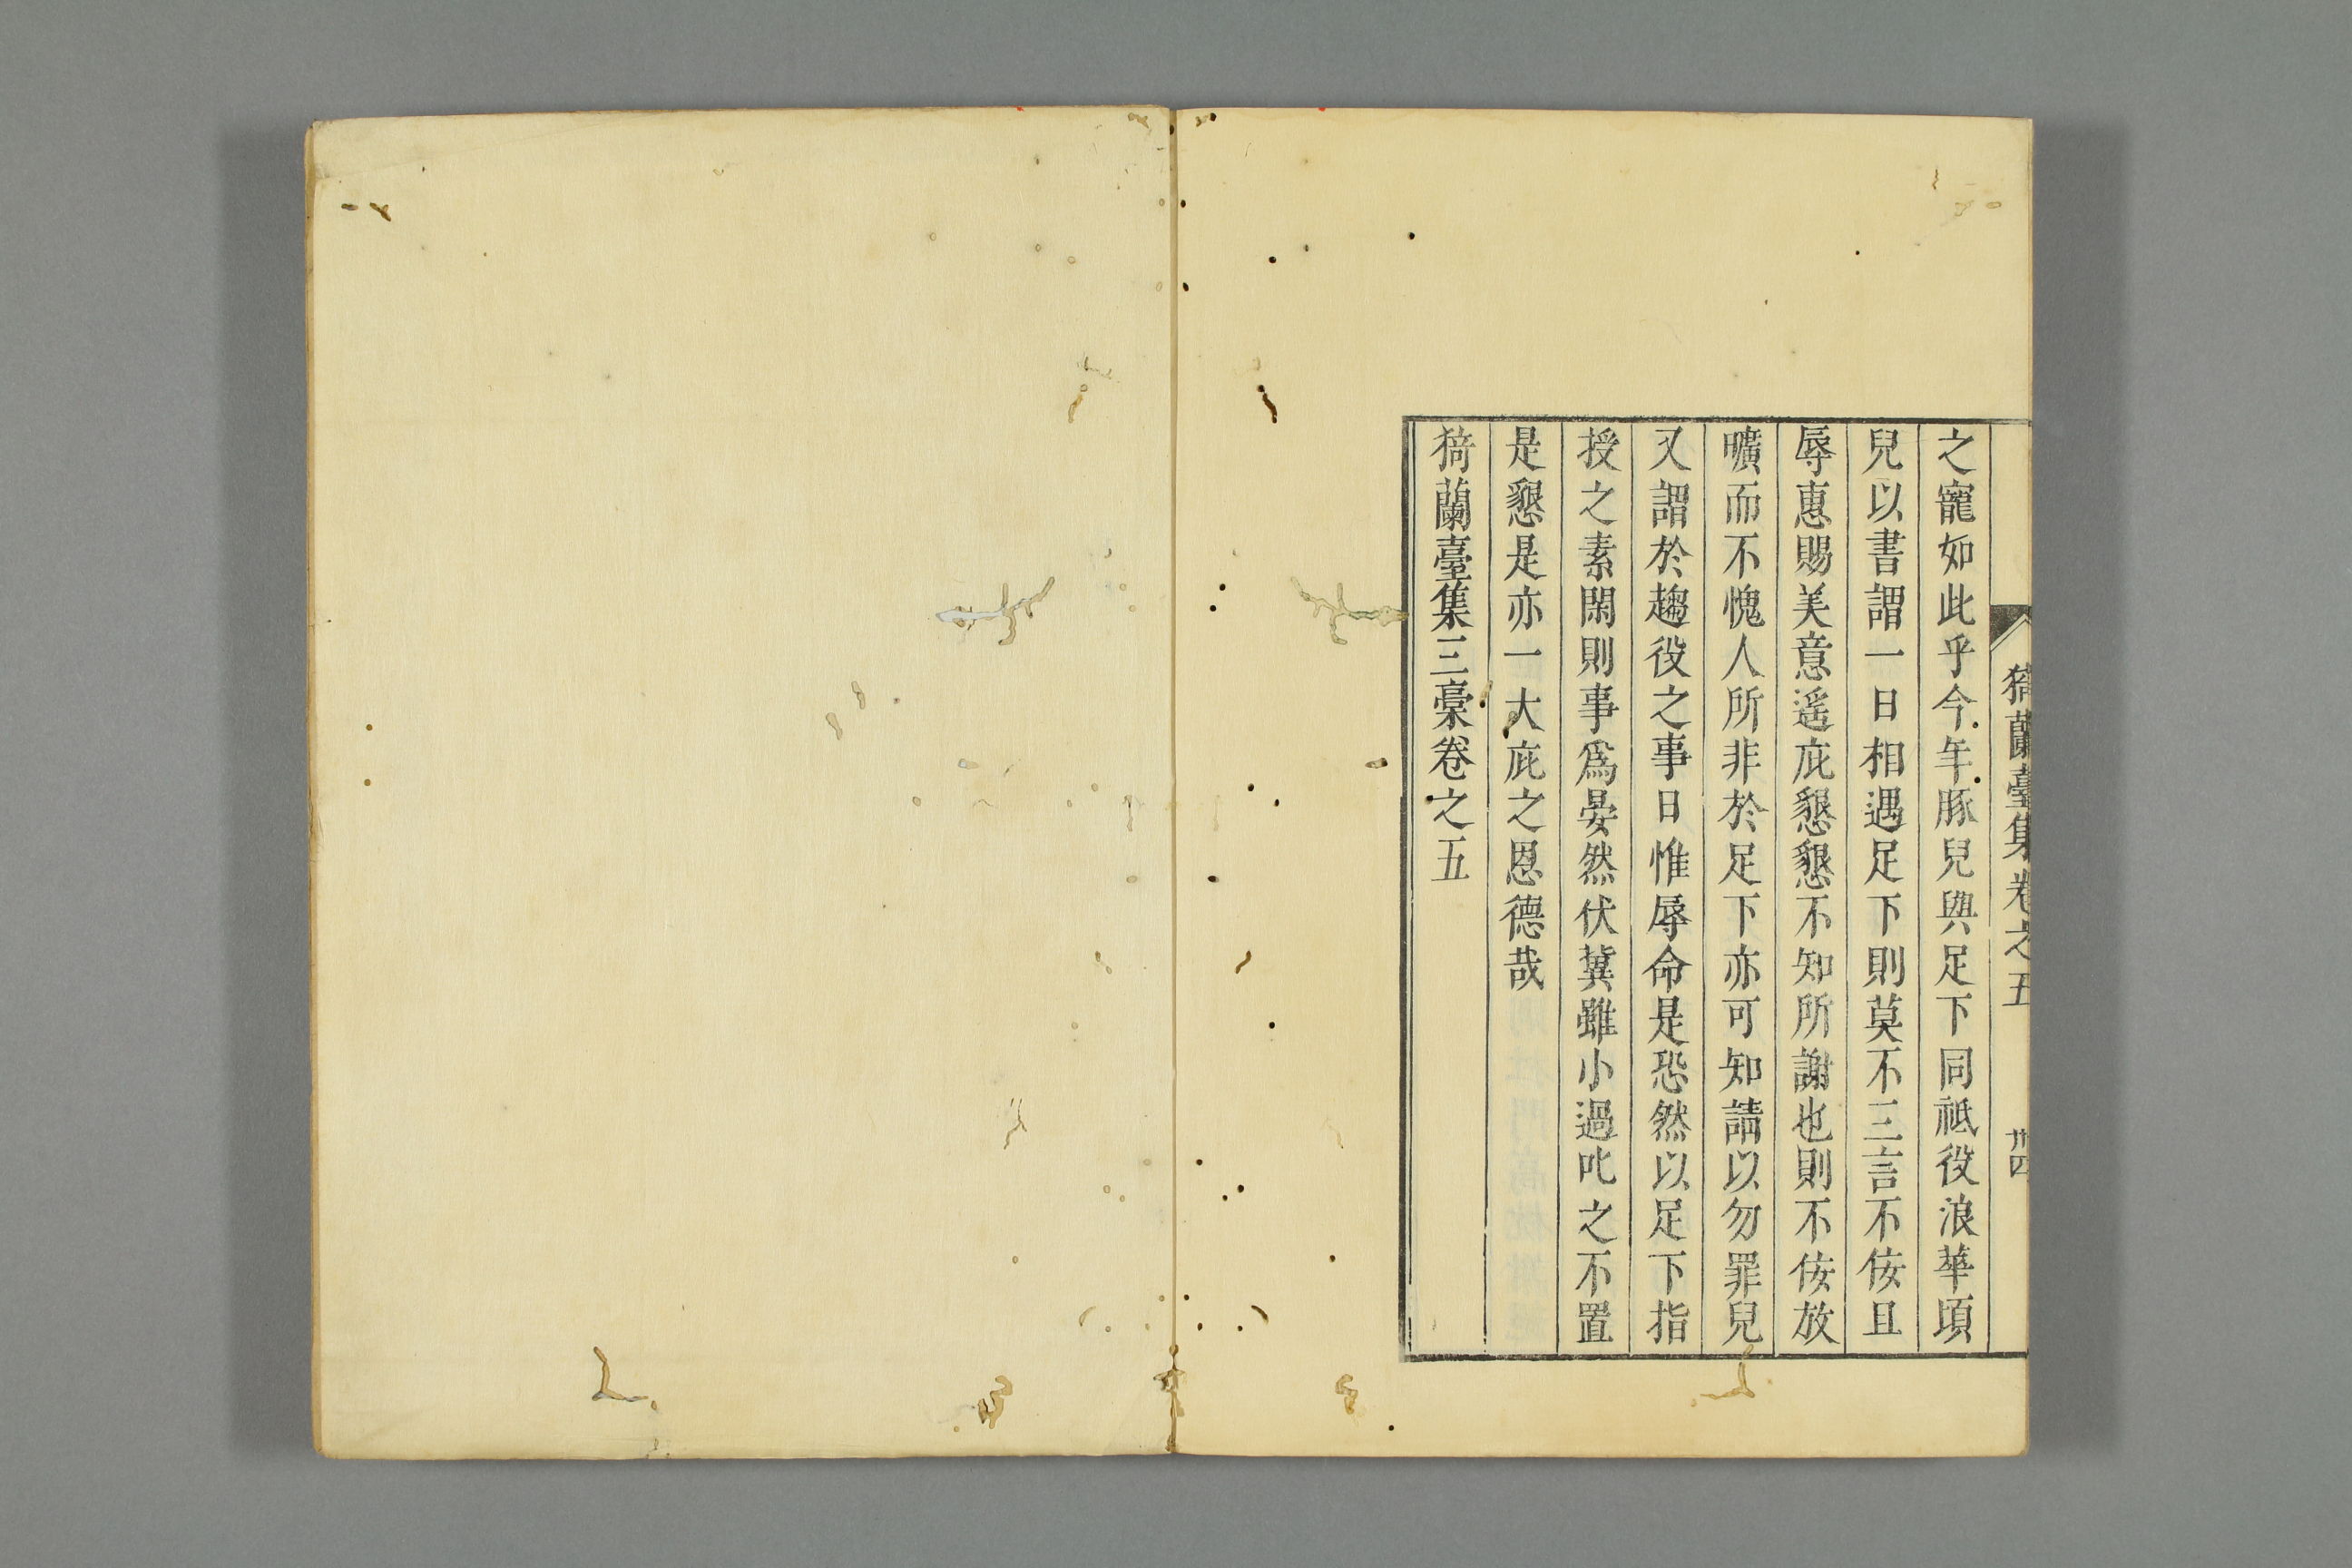 猗蘭臺集卷之五 卅四
之寵如此乎今年豚兒與足下同祗役浪華頃
兒以書謂一日相遇足下則莫不三言不佞且
辱惠賜美意遥庇懇懇不知所謝也則不佞放
曠而不愧人所非於足下亦可知請以勿罪兒
又謂於趨役之事日惟辱命是恐然以足下指
授之素閑則事爲晏然伏冀雖小過叱之不置
是懇是亦一大庇之恩德哉
猗蘭臺集三稾卷之五